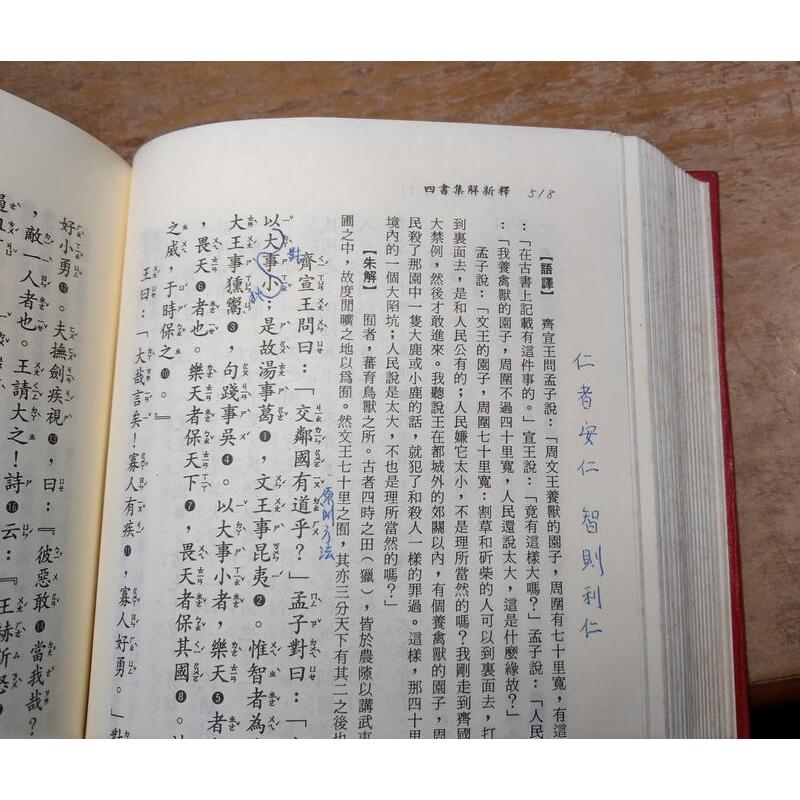 四書集解新釋 518
仁者安仁 智則利仁
【語譯】 齊宣王問孟子說：「周文王養獸的園子，周圍有七十里寬，有這
：「在古書上記載有這件事的。」宣王說：「竟有這樣大嗎？」孟子說：「人民
：「我養禽獸的園子，周圍不過四十里寬，人民還說太大，這是什麼緣故？」
孟子說：「文王的園子，周圍七十里寬：割草和斫柴的人可以到裏面去，打
到裏面去，是和人民公有的；人民嫌它太小，不是理所當然的嗎？我剛走到齊國
大禁例，然後才敢進來。我聽說王在都城外的郊關以內，有個養禽獸的園子，周
民殺了那園中一隻大鹿或小鹿的話，就犯了和殺人一樣的罪過。這樣，那四十里
境內的一個大陷坑；人民說是太大，不也是理所當然的嗎？」
【朱解】 囿者，蕃育鳥獸之所。古者四時之田（獵），皆於農隙以講武事
圃之中，故度閒曠之地以爲囿。然文王七十里之囿，其亦三分天下有其二之後也
原則方法
齊宣王問曰：「交鄰國有道乎？」孟子對曰：「
對
以大事小；是故湯事葛❶，文王事昆夷❷。惟智者為
大王事獯鬻❸，句踐事吳❹。以大事小者，樂天❺者
，畏天❻者也。樂天者保天下❼，畏天者保其國❽。
之威，于時保之❿。』
王曰：「大哉言矣！寡人有疾⓫，寡人好勇。」對
好小勇⓬。夫撫劍疾視⓭，曰：『彼惡敢⓮當我哉？
，敵一人者也。王請大之！詩⓰云：『王赫斯怒